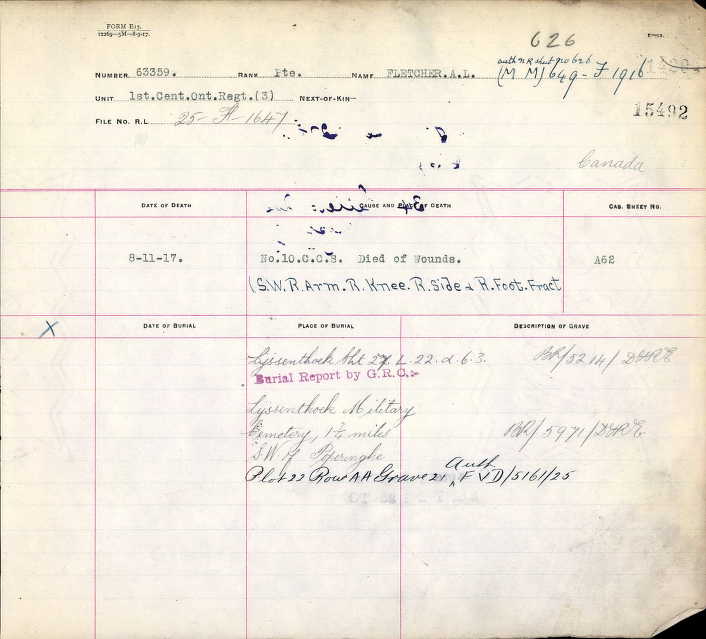 FORM E17.
12269—5M—8-9-17.
626
auth N R sheet No 626
NUMBER 63359. RANK Pte. NAME FLETCHER.A.L. (M M) 649-F 1916
UNIT 1st.Cent.Ont.Regt.(3) NEXT-OF-KIN—
15492
FILE NO. R.L 25-F-1647
Canada
DATE OF DEATH CAUSE AND PLACE OF DEATH CAS. SHEET NO.
8-11-17. No.10.C.C.S. Died of Wounds. A62
(S.W. R.Arm. R. Knee. R. Side & R. Foot. Fract
X DATE OF BURIAL PLACE OF BURIAL DESCRIPTION OF GRAVE
Lyssenthoek Sht 27. L. 22. d. 6.3. BR/5214/DGR&E
Burial Report by G.R.C:-
Lyssenthoek Military
Cemetery, 1¼ miles BR/5971/DGR&E
S.W of Poperinghe
Plot 22 Row AA Grave 21 Auth F V D/5161/25